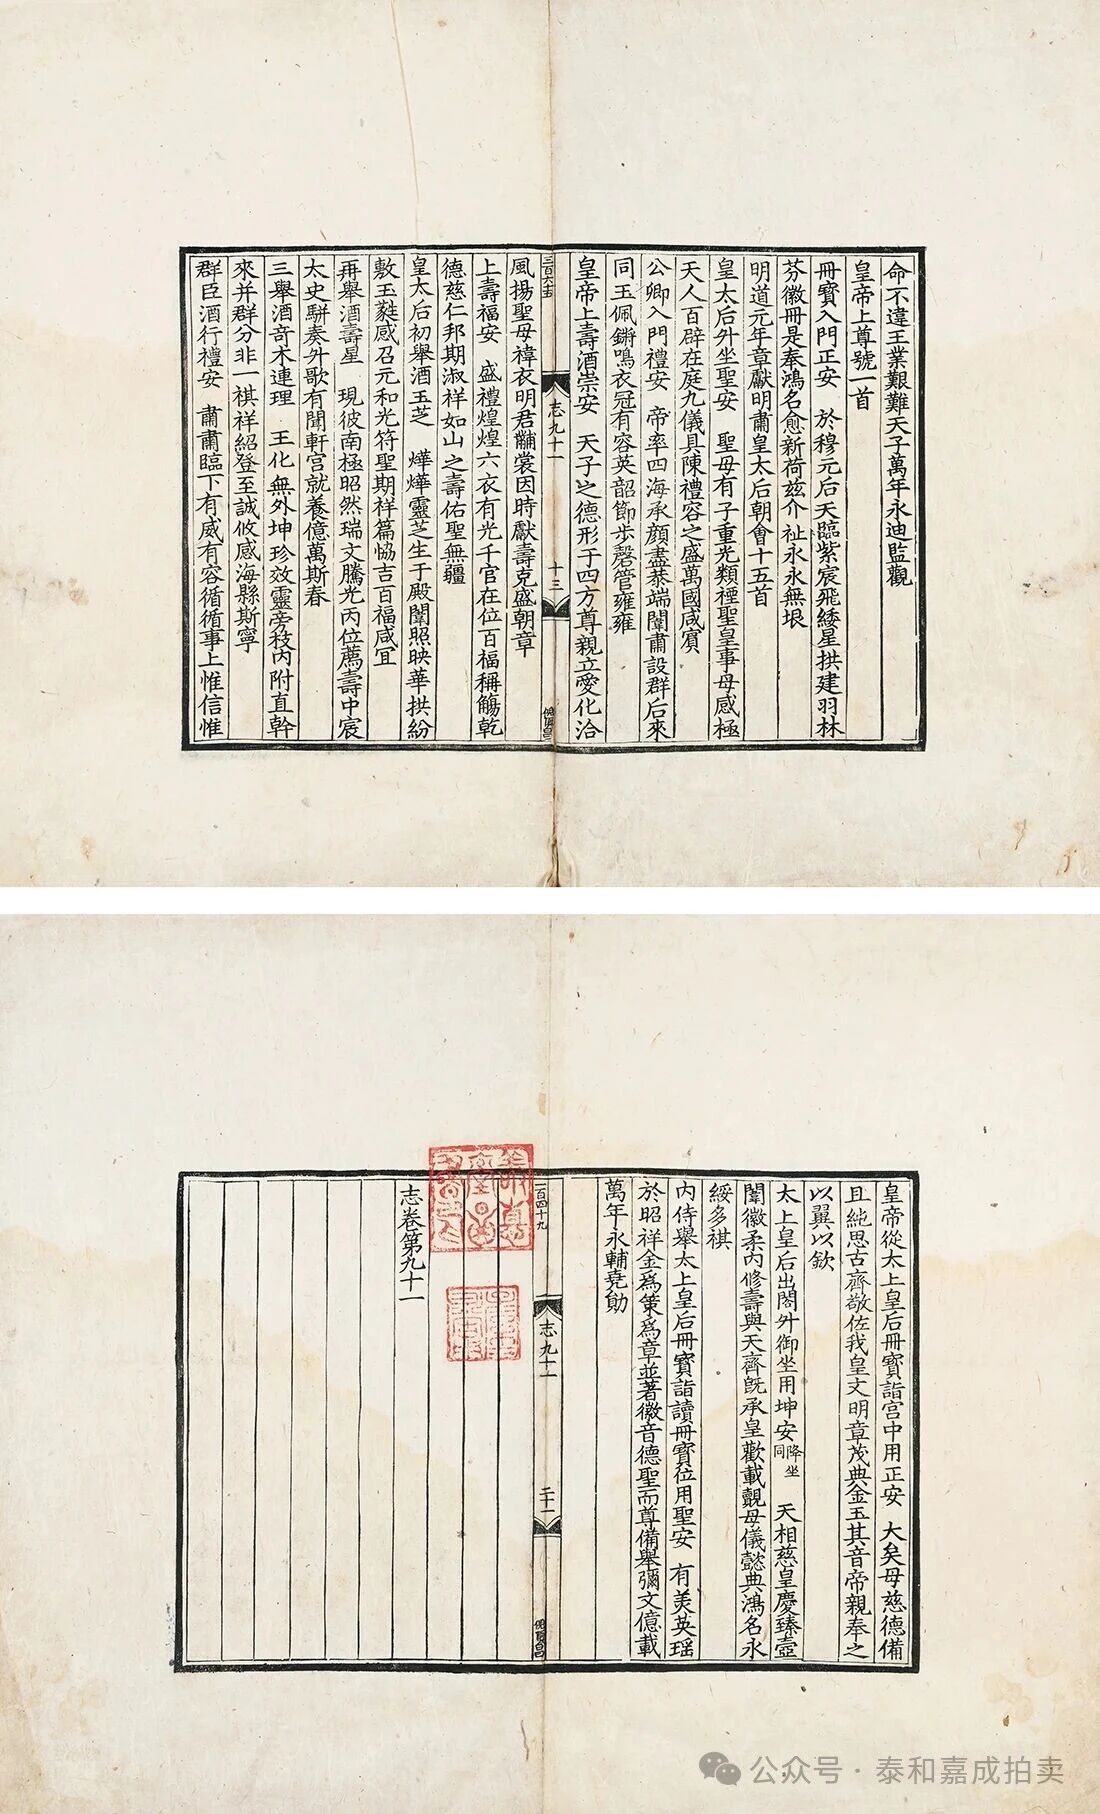 命不違王業艱難天子萬年永迪監觀
皇帝上尊號一首
冊寶入門正安　於穆元后天臨紫宸飛緌星拱建羽林
芬徽冊是奉鴻名愈新荷玆介祉永永無垠
明道元年章獻明肅皇太后朝會十五首
皇太后升坐聖安　聖母有子重光類禋聖皇事母感極
天人百辟在庭九儀具陳禮容之盛萬國咸賓
公卿入門禮安　帝率四海承顏盡恭端闈肅設群后來
同玉佩鏘鳴衣冠有容英韶節步磬管雍雍
皇帝上壽酒崇安　天子之德形于四方尊親立愛化洽
三百六十五
志九十一
十三
風揚聖母褘衣明君黼裳因時獻壽克盛朝章
上壽福安　盛禮煌煌六衣有光千官在位百福稱觴乾
德慈仁邦期淑祥如山之壽佑聖無疆
皇太后初舉酒玉芝　燁燁靈芝生于殿闈照映華拱紛
敷玉蕤感召元和光符聖期祥篇恊吉百福咸宜
再舉酒壽星　現彼南極昭然瑞文騰光丙位薦壽中宸
太史駢奏升歌有聞軒宮就養億萬斯春
三舉酒竒木連理　王化無外坤珍效靈旁枝内附直幹
來并群分非一祺祥紹登至誠攸感海縣斯寧
群臣酒行禮安　肅肅臨下有威有容循循事上惟信惟
皇帝從太上皇后冊寶詣宫中用正安　大矣母慈德備
且純思古齊敬佐我皇文明章茂典金玉其音帝親奉之
以翼以欽
太上皇后出閤升御坐用坤安降坐同　天相慈皇慶臻壼
闈徽柔内修壽與天齊旣承皇歡載覿母儀懿典鴻名永
綏多祺
内侍舉太上皇后冊寶詣讀冊寶位用聖安　有美英瑶
於昭祥金爲策爲章並著徽音德聖而尊備舉彌文億載
萬年永輔堯勛
一百四十九
志九十一
二十一
志卷第九十一
公众号·泰和嘉成拍卖